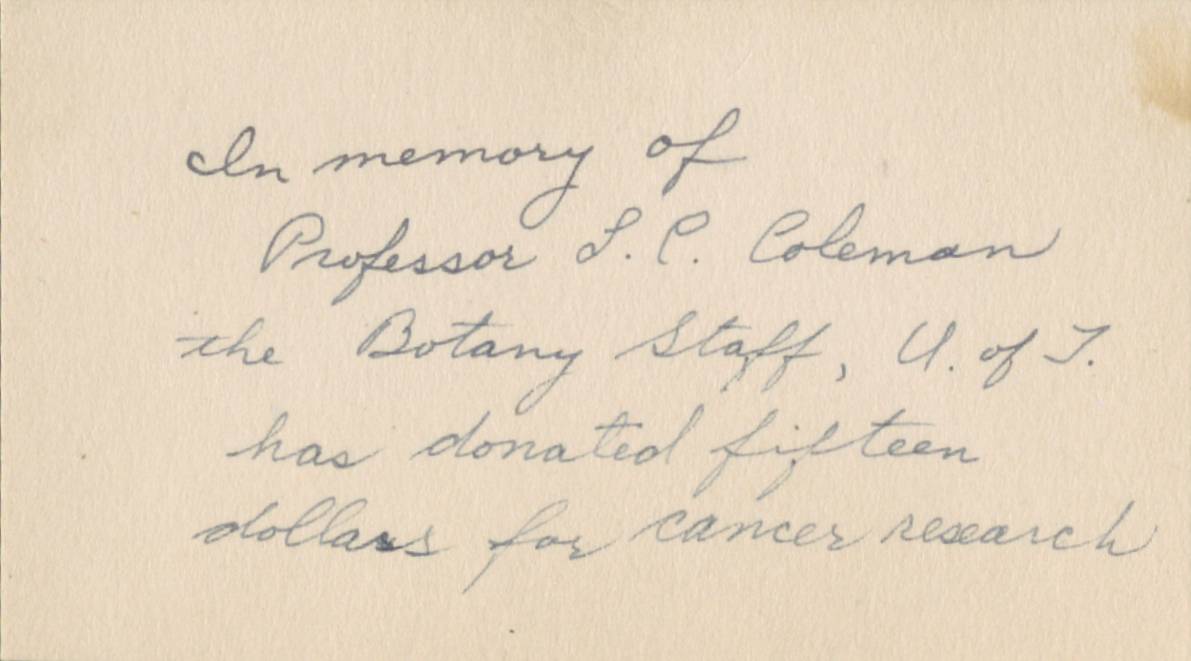 In memory of
Professor L. C. Coleman
the Botany Staff, U. of T.
has donated fifteen
dollars for cancer research